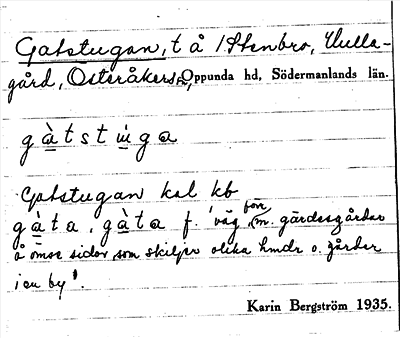 Gatstugan, t å 1 Stenbro, Hulla-
gård, Österåkers sn, Oppunda hd, Södermanlands län.
gàtstùga
Gatstugan kal kb
gàta, gàta f. 'väg m. gärdesgårdar
å ömse sidor, som skiljer olika hmdr o. gårder
i en by'.
Karin Bergström 1935.